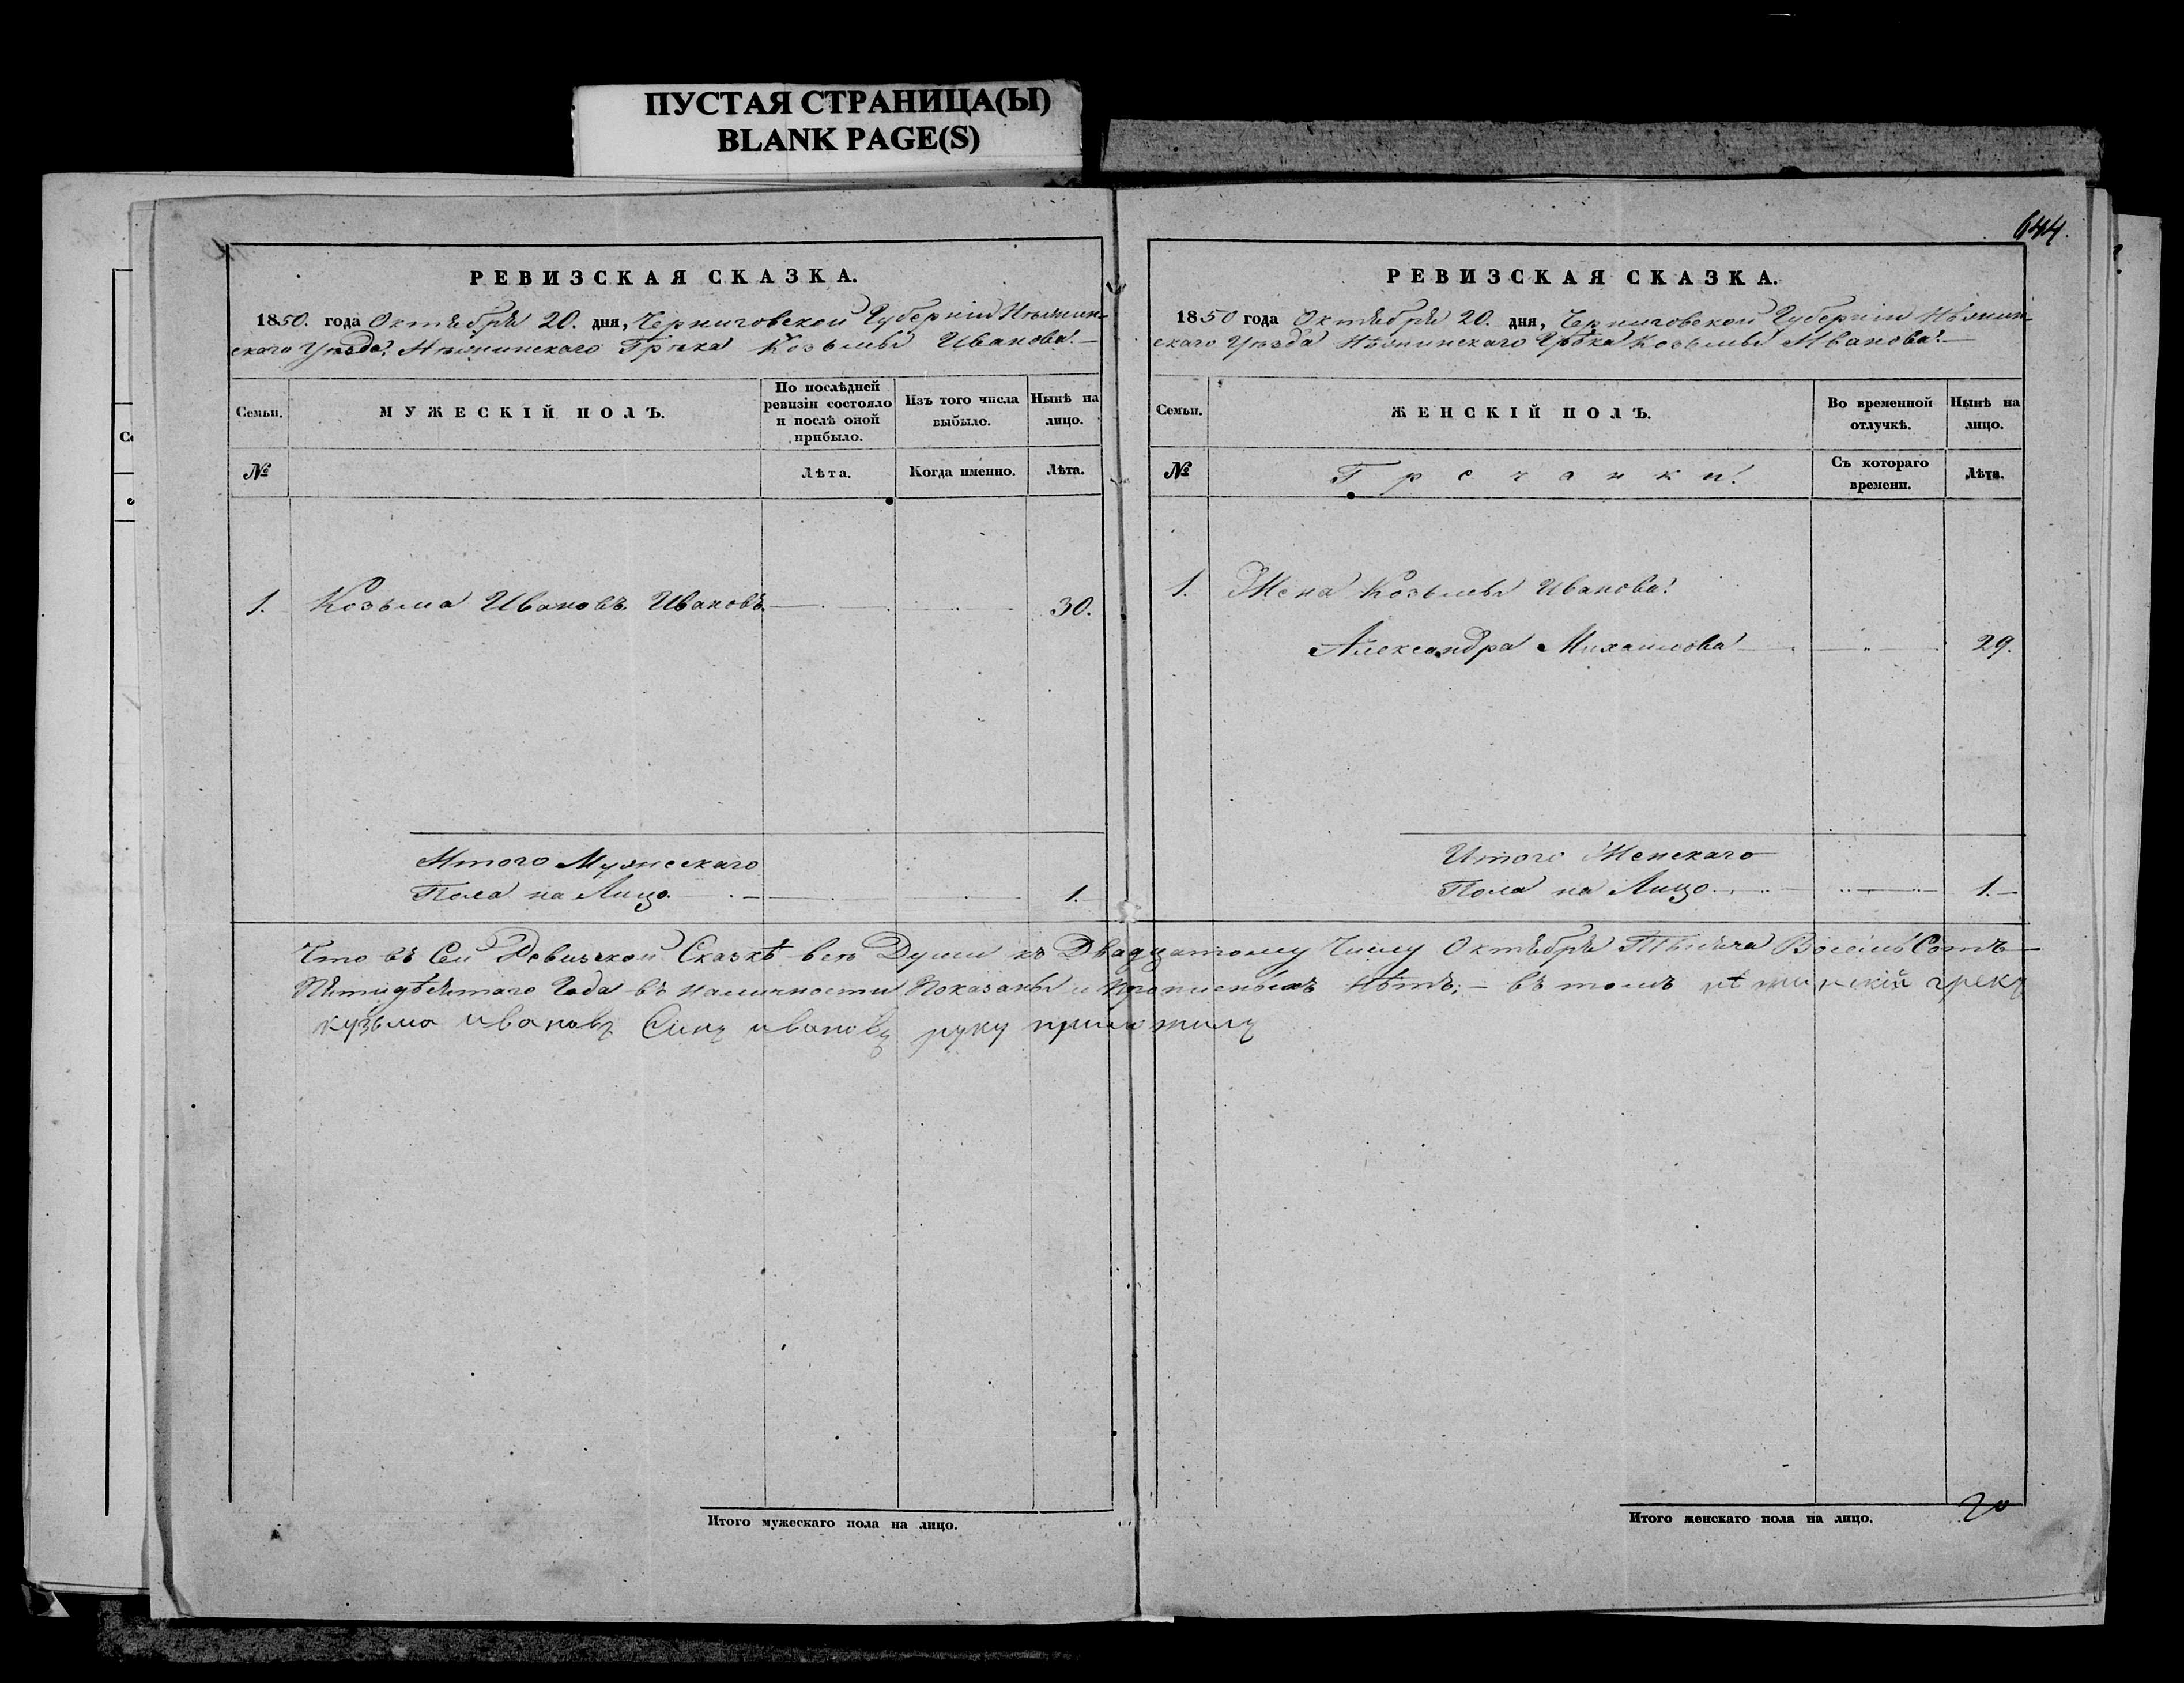 ПУСТАЯ СТРАНИЦА(Ы)
BLANK PAGE(S)
РЕВИЗСКАЯ СКАЗКА.
1850. года Октѣбрѣ 20. дня, Черниговской Губерніи Нѣжин-
скаго Уѣзда, Нѣжинскаго Грѣка Козьмы Иванова.—
Семьи.
МУЖЕСКІЙ ПОЛЪ.
По послѣдней
ревизіи состояло
и послѣ оной
прибыло.
Изъ того числа
выбыло.
Нынѣ на
лицо.
№
Лѣта.
Когда именно.
Лѣта.
1. Козьма Ивановъ Ивановъ 30.
Итого Мужескаго
Пола на Лицо. 1.
644.
РЕВИЗСКАЯ СКАЗКА.
1850 года Октѣбрѣ 20. дня, Черниговской Губерніи Нѣжин-
скаго Уѣзда Нѣжинскаго Грѣка Козьмы Иванова.—
Семьи.
ЖЕНСКІЙ ПОЛЪ.
Во временной
отлучкѣ.
Нынѣ на
лицо.
№
Гречанки.
Съ котораго
времени.
Лѣта.
1. Жена Козьмы Иванова
Александра Михаилова 29.
Итого Женскаго
Пола на Лицо. 1.
Что въ Сей Ревизской Сказкѣ всѣ Души къ Двадцатому Числу Октѣбрѣ Тысѣча Восемь Сотъ
Пѣтидѣсѣтаго Года въ наличности Показаны и Прописныхъ Нѣтъ;— въ томъ нѣжинскій грекъ
кузьма ивановъ Синъ ивановъ руку приложилъ
Итого мужескаго пола на лицо.
Итого женскаго пола на лицо.
20